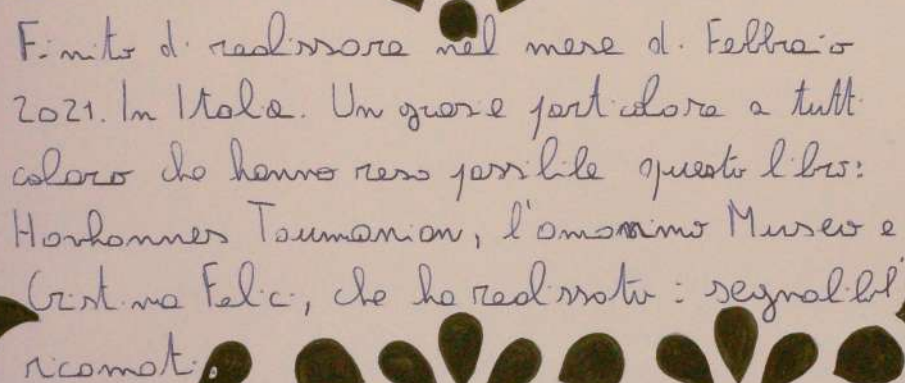 Finito di realizzare nel mese di Febbraio
2021. In Italia. Un grazie particolare a tutti
coloro che hanno reso possibile questo libro:
Hovhannes Toumanian, l'omonimo Museo e
Cristina Felici, che ha realizzato i segnalibri
ricamati.